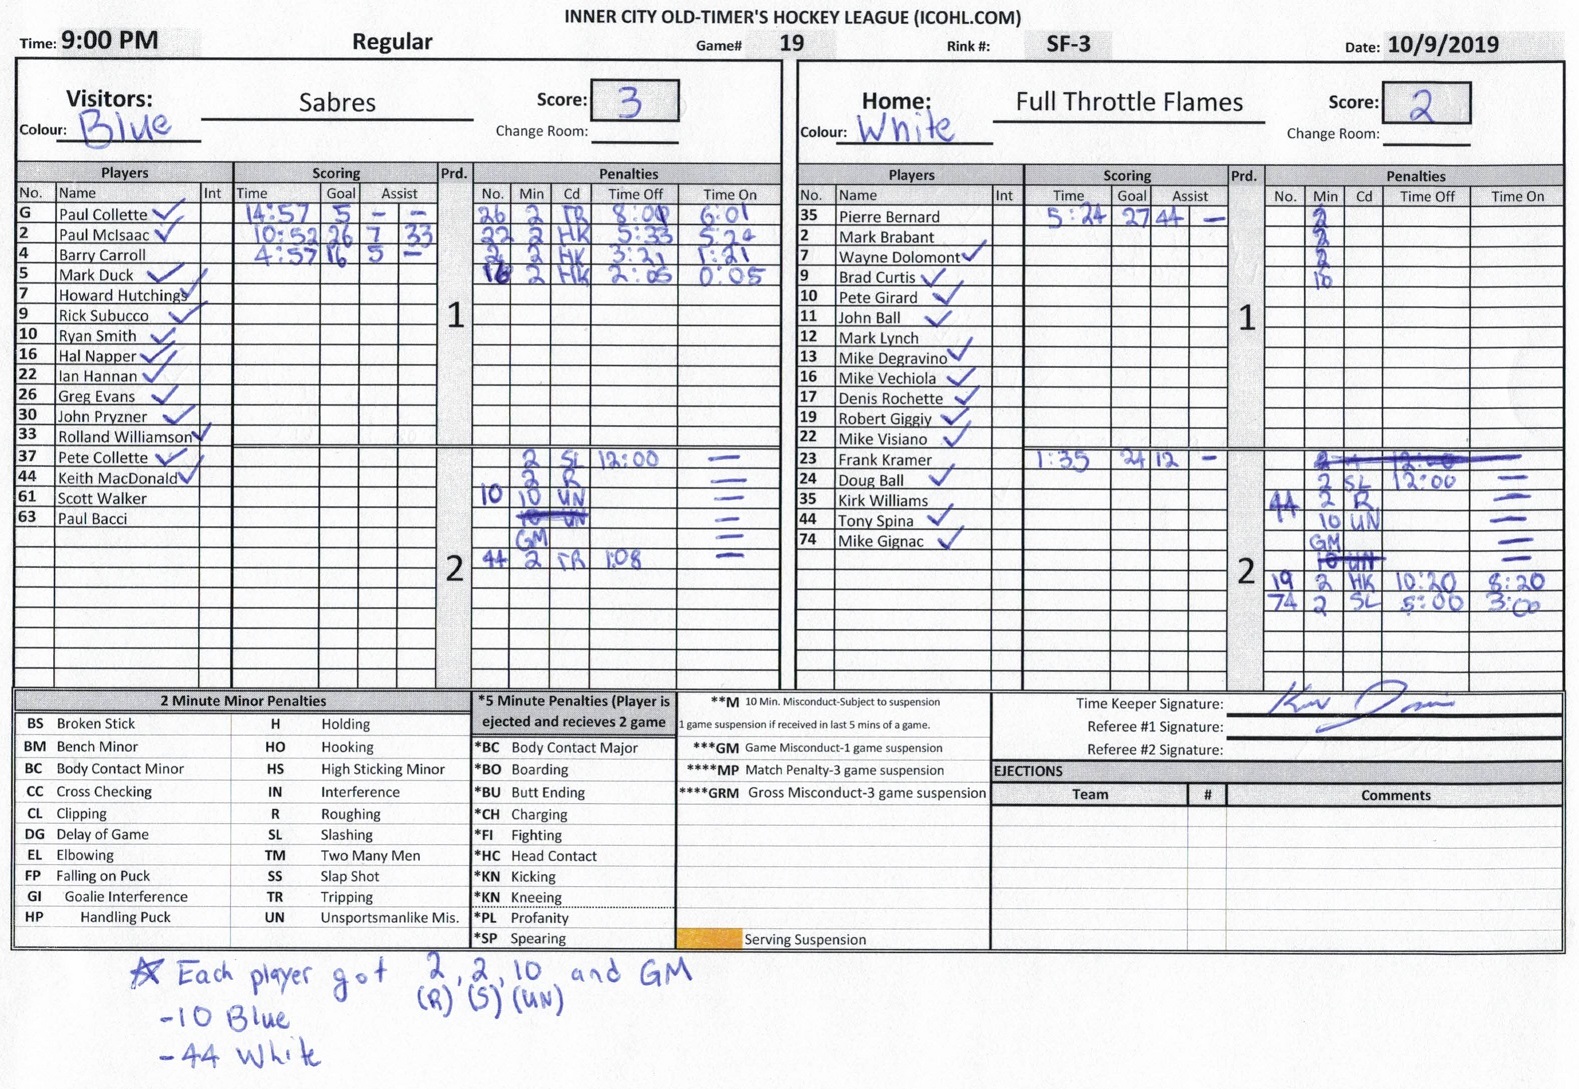 INNER CITY OLD-TIMER'S HOCKEY LEAGUE (ICOHL.COM)
Time: 9:00 PM Regular Game# 19 Rink #: SF-3 Date: 10/9/2019
Visitors: Sabres Score: 3
Colour: Blue Change Room:
Home: Full Throttle Flames Score: 2
Colour: White Change Room:
Players Scoring Prd. Penalties
No. Name Int Time Goal Assist No. Min Cd Time Off Time On
G Paul Collette ✓ 14:57 5 - - 26 2 TR 8:00 6:01
2 Paul McIsaac ✓ 10:52 26 7 33 22 2 HK 5:33 5:24
4 Barry Carroll 4:57 16 5 - 2 2 HK 3:21 1:21
5 Mark Duck ✓ 16 2 HK 2:05 0:05
7 Howard Hutchings ✓
9 Rick Subucco ✓ 1
10 Ryan Smith ✓
16 Hal Napper ✓
22 Ian Hannan ✓
26 Greg Evans ✓
30 John Pryzner ✓
33 Rolland Williamson ✓
37 Pete Collette ✓ 2 SL 12:00 —
44 Keith MacDonald ✓ 2 R
61 Scott Walker 10 10 UN —
63 Paul Bacci 10 UN —
GM —
2 44 2 TR 1:08 —
Players Scoring Prd. Penalties
No. Name Int Time Goal Assist No. Min Cd Time Off Time On
35 Pierre Bernard 5:24 27 44 - 2
2 Mark Brabant 2
7 Wayne Dolomont ✓ 2
9 Brad Curtis ✓ 10
10 Pete Girard ✓
11 John Ball ✓ 1
12 Mark Lynch
13 Mike Degravino ✓
16 Mike Vechiola ✓
17 Denis Rochette ✓
19 Robert Giggiy ✓
22 Mike Visiano ✓
23 Frank Kramer 1:35 24 12 - 2 12:00 —
24 Doug Ball ✓ 2 SL 12:00 —
35 Kirk Williams 44 2 R
44 Tony Spina ✓ 10 UN —
74 Mike Gignac ✓ GM —
10 UN —
2 19 2 HK 10:20 8:20
74 2 SL 5:00 3:00
2 Minute Minor Penalties
BS Broken Stick H Holding
BM Bench Minor HO Hooking
BC Body Contact Minor HS High Sticking Minor
CC Cross Checking IN Interference
CL Clipping R Roughing
DG Delay of Game SL Slashing
EL Elbowing TM Two Many Men
FP Falling on Puck SS Slap Shot
GI Goalie Interference TR Tripping
HP Handling Puck UN Unsportsmanlike Mis.
*5 Minute Penalties (Player is
ejected and recieves 2 game
*BC Body Contact Major
*BO Boarding
*BU Butt Ending
*CH Charging
*FI Fighting
*HC Head Contact
*KN Kicking
*KN Kneeing
*PL Profanity
*SP Spearing
**M 10 Min. Misconduct-Subject to suspension
1 game suspension if received in last 5 mins of a game.
***GM Game Misconduct-1 game suspension
****MP Match Penalty-3 game suspension
****GRM Gross Misconduct-3 game suspension
Serving Suspension
Time Keeper Signature:
Referee #1 Signature:
Referee #2 Signature:
EJECTIONS
Team # Comments
☆ Each player got 2, 2, 10 and GM
(R) (S) (UN)
-10 Blue
-44 White